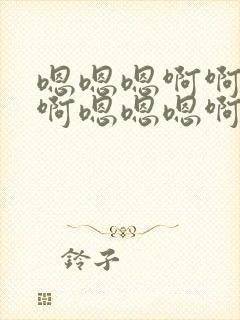 嗯嗯嗯啊啊
啊嗯嗯嗯啊
铃子